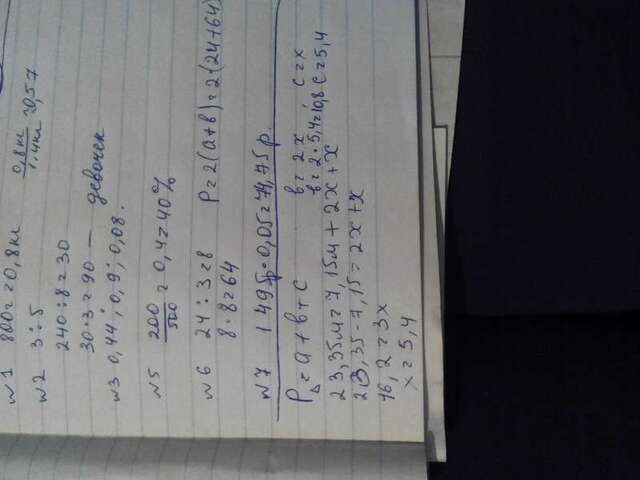 №1 800г = 0,8кг 0,8кг/1.4кг = 0,57
№2 3:5
240:8=30
30·3=90 — девочек
№3 0,44; 0,9; 0,08.
№5 200/500 = 0,4 = 40%
№6 24:3=8 P=2(a+b)=2(24+64)
8·8=64
№7 1495р·0,05=74,75р
P△ = a+b+c b=2x c=x
23,35м=7,15м+2x+x b=2·5,4=10,8 c=5,4
23,35-7,15=2x+x
16,2=3x
x=5,4